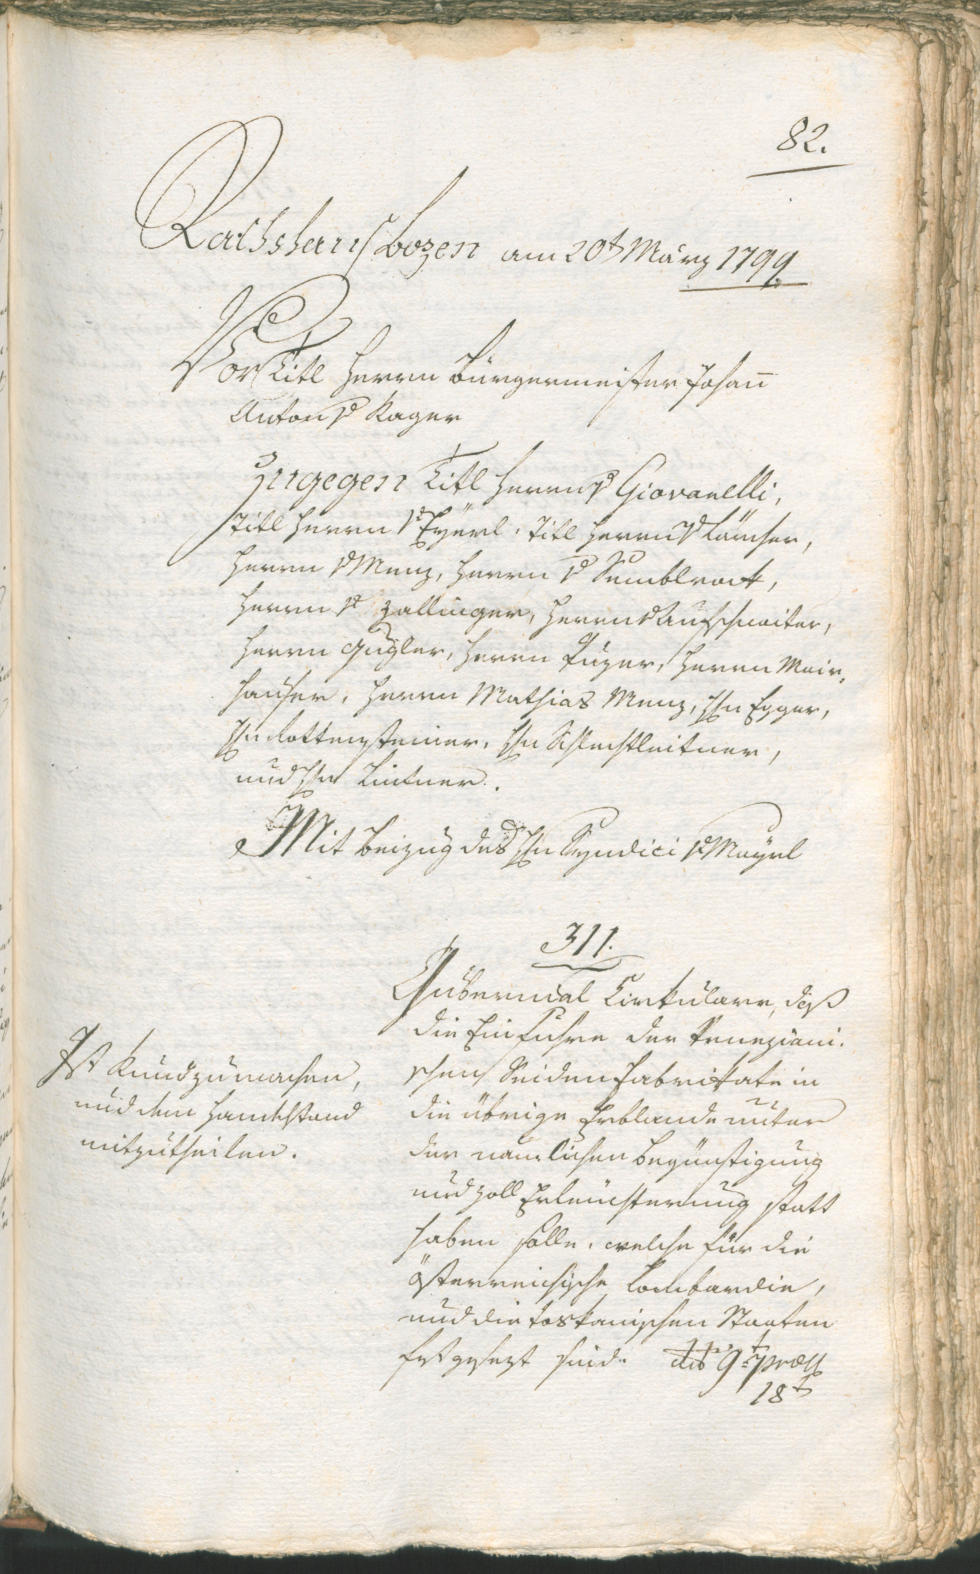 82.
Rathshaus Bozen am 20t März 1799
Vor Titl Herrn Bürgermeister Johan̅
Anton v Kager
Zugegen Titl Herrn v Giovanelli,
Titl Herrn v Eyerl, Titl Herrn v Lämser,
Herrn v Menz, Herrn v Sumblrock,
Herrn v Zallinger, Herrn v Aufschnaiter,
Herrn Gugler, Herrn Puzer, Herrn Mair-
hauser, Herrn Mathias Menz, Hn Egger,
Hn Rottensteiner, Hn Schlechtleitner,
und Hn Lintner.
Mit Beizug des Hn Syndici v Mayrl
311.
Gubernial Cirkulare, daß
die Einfuhre der Veneziani-
schen Seiden Fabrikate in
die übrige Erblande unter
der nämlichen Begünstigung
und Zoll Erleuchterung statt
haben solle, welche für die
österreichische Lombardie,
und die toskanischen Staaten
festgesezt sind. dto 9t præs
18t
Ist Kundzumachen,
und dem Handelstand
mitzutheilen.